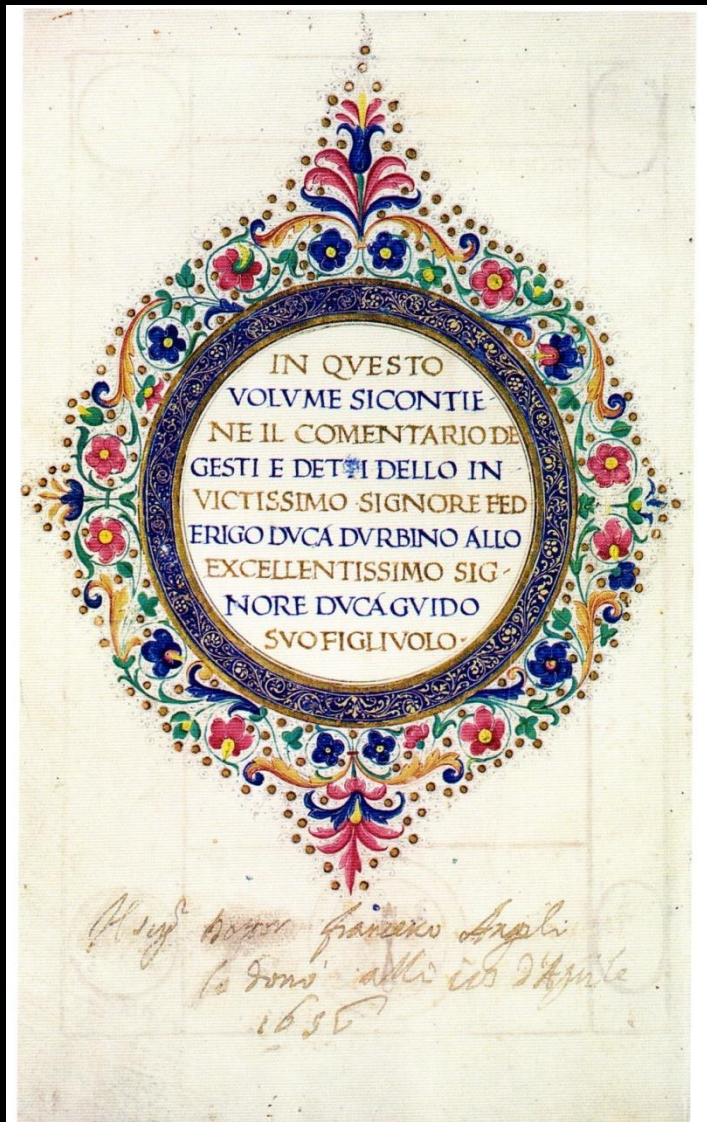 IN QVESTO
VOLVME SICONTIE-
NE IL COMENTARIO DE
GESTI E DETTI DELLO IN
VICTISSIMO SIGNORE FED
ERIGO DVCA DVRBINO ALLO
EXCELLENTISSIMO SIG-
NORE DVCA GVIDO
SVO FIGLIVOLO·
Francesco Angeli
lo donò alli d'Aprile